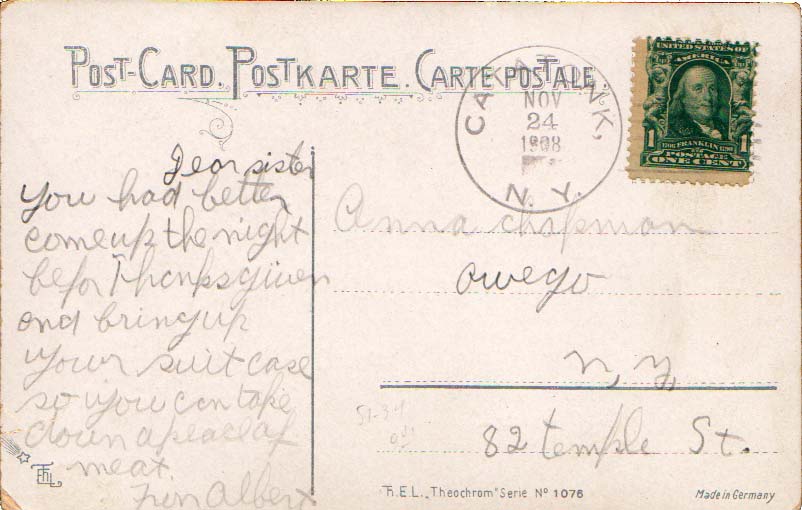 POST-CARD. POSTKARTE. CARTE POSTALE.
CATATONK,
NOV
24
1908
N. Y.
UNITED STATES OF
AMERICA
1 1
1706 FRANKLIN 1790
POSTAGE
ONE CENT
Dear sister
You had better
come up the night
befor Thenksgiiven
and bring up
your suit case
so you can take
down a peace of
meat.
From Albert
Anna chapman
owego
n, y,
82 temple St.
51-34
THEL
T.H.E.L. „Theochrom" Serie No 1076
Made in Germany